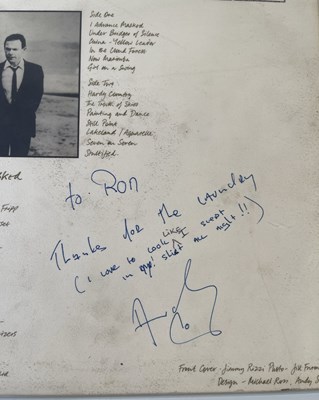 Side One
I Advance Masked
Under Bridges of Silence
China - Yellow Leader
In the Cloud Forest
New Marimba
Girl on a Swing
Side Two
Hardy Country
The Truth of Skies
Painting and Dance
Still Point
Lakeland / Aquarelle
Seven on Seven
Stultified
to RON
Thanks for the laundry
(I love to look LIKE I sweat
in my shirt one night!!)
Andy
Front Cover - Jimmy Rizzi Photo - Jill Furm
Design - Michael Ross, Andy S